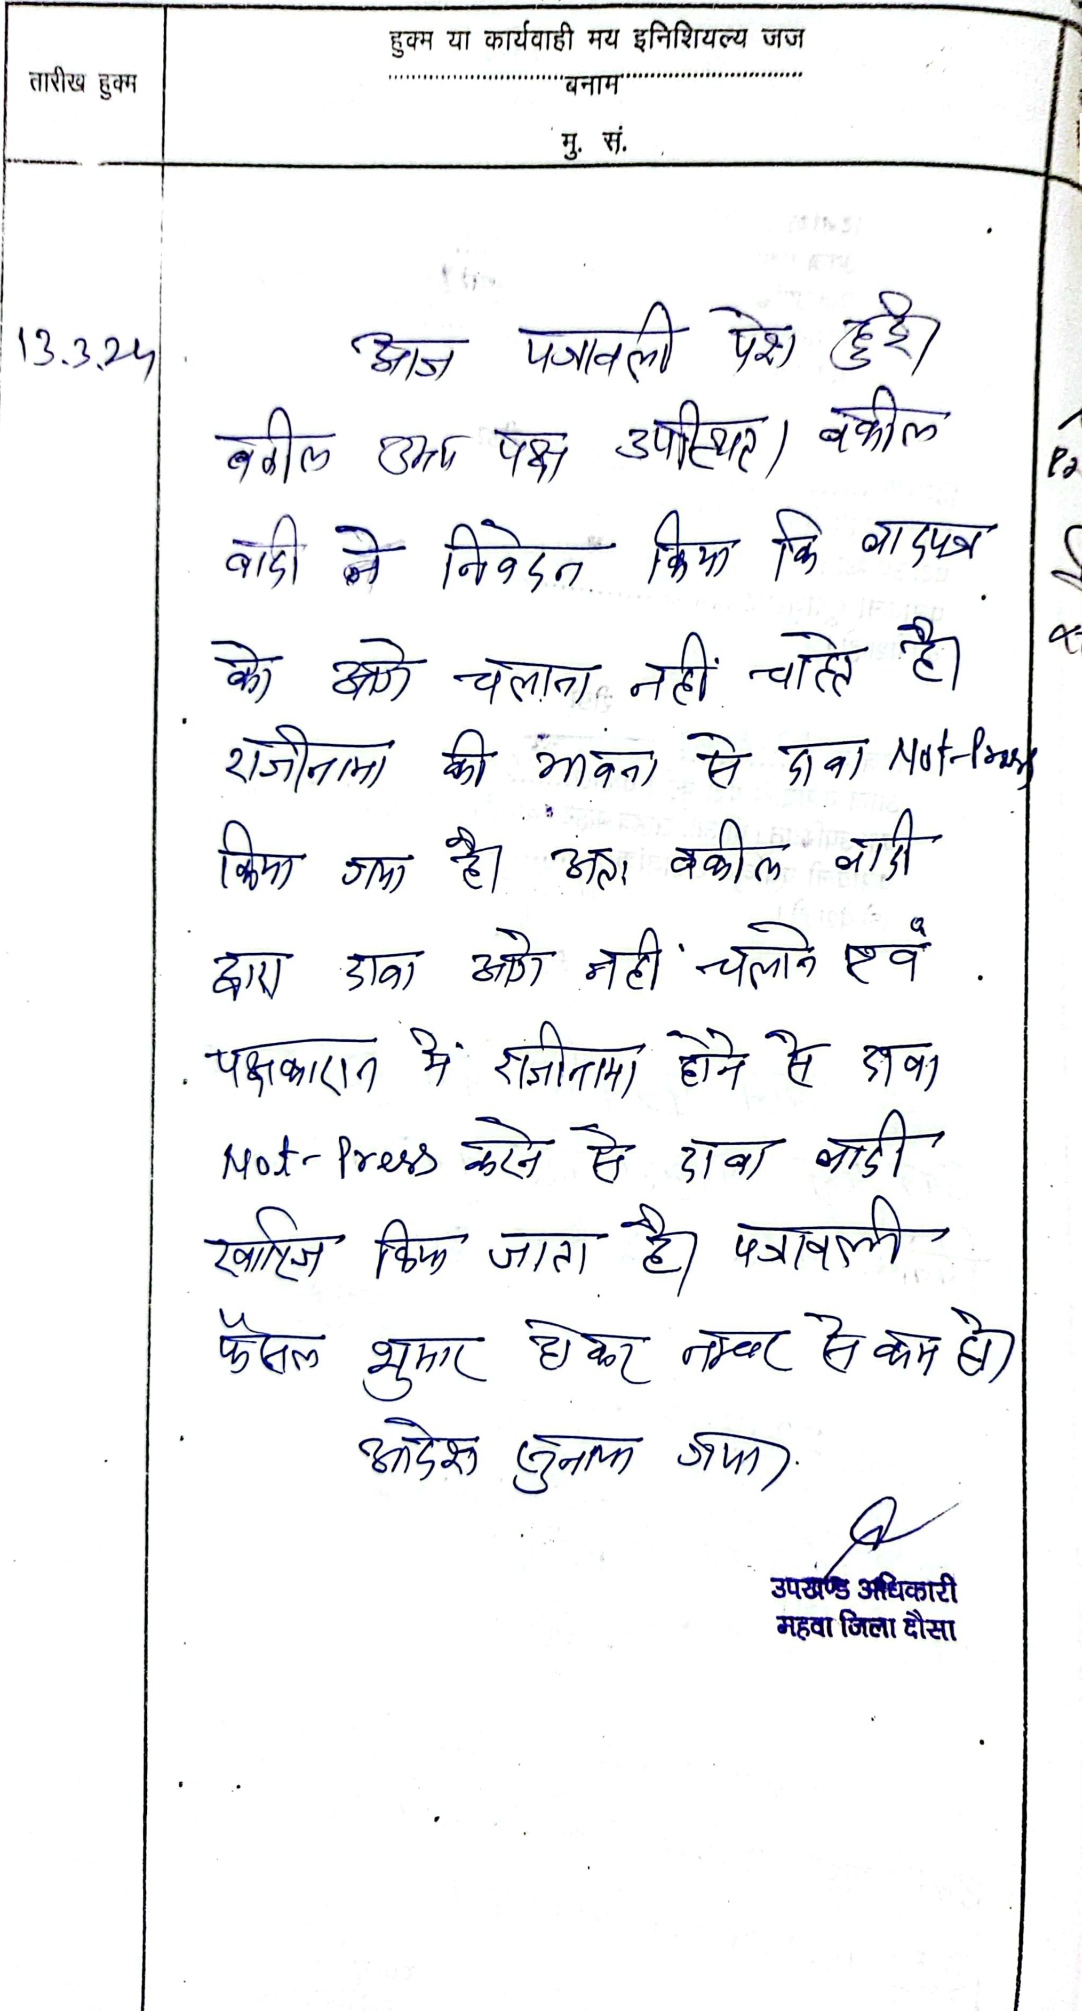 हुक्म या कार्यवाही मय इनिशियल्य जज
तारीख हुक्म
बनाम
मु. सं.
13.3.24
आज पत्रावली पेश हुई।
वकील उभय पक्ष उपस्थित। वकील
वादी ने निवेदन किया कि वादपत्र
को आगे चलाना नहीं चाहते है।
राजीनामा की भावना से दावा Not-Press
किया गया है। अतः वकील वादी
द्वारा दावा आगे नहीं चलाने एवं
पक्षकारान में राजीनामा होने से दावा
Not-Press करने से दावा वादी
खारिज किया जाता है। पत्रावली
फैसल शुमार होकर नम्बर से कम हो।
आदेश सुनाया गया।
उपखण्ड अधिकारी
महवा जिला दौसा